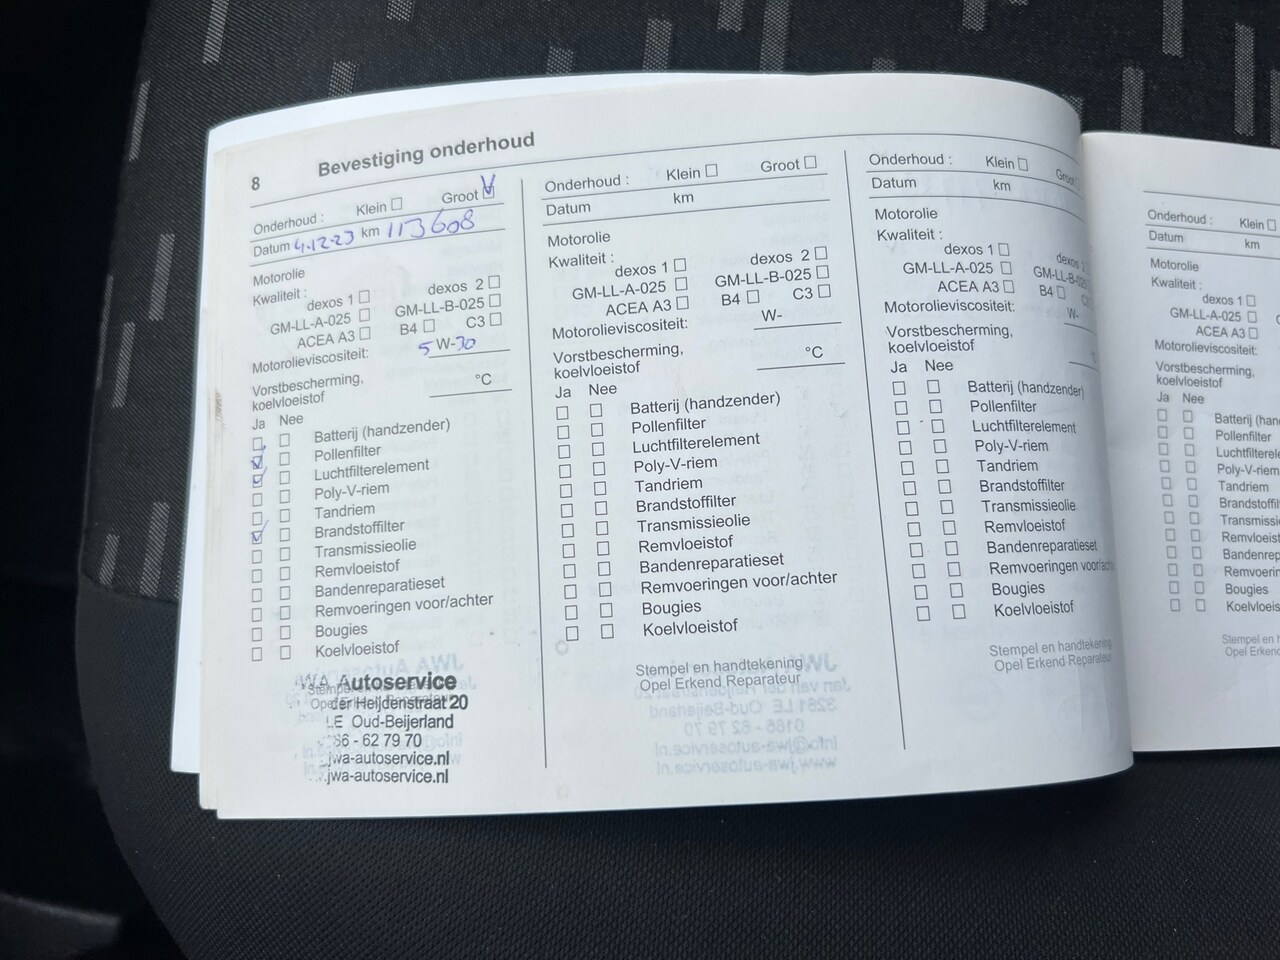 8 Bevestiging onderhoud
Onderhoud : Klein Groot
Datum 4-12-23 km 113608
Motorolie
Kwaliteit :
dexos 1 dexos 2
GM-LL-A-025 GM-LL-B-025
ACEA A3 B4 C3
Motorolieviscositeit: 5 W-30
Vorstbescherming,
koelvloeistof °C
Ja Nee
Batterij (handzender)
Pollenfilter
Luchtfilterelement
Poly-V-riem
Tandriem
Brandstoffilter
Transmissieolie
Remvloeistof
Bandenreparatieset
Remvoeringen voor/achter
Bougies
Koelvloeistof
Autoservice
der Heijdenstraat 20
LE Oud-Beijerland
86 - 62 79 70
jwa-autoservice.nl
jwa-autoservice.nl
Onderhoud : Klein Groot
Datum km
Motorolie
Kwaliteit :
dexos 1 dexos 2
GM-LL-A-025 GM-LL-B-025
ACEA A3 B4 C3
Motorolieviscositeit: W-
Vorstbescherming,
koelvloeistof °C
Ja Nee
Batterij (handzender)
Pollenfilter
Luchtfilterelement
Poly-V-riem
Tandriem
Brandstoffilter
Transmissieolie
Remvloeistof
Bandenreparatieset
Remvoeringen voor/achter
Bougies
Koelvloeistof
Stempel en handtekening
Opel Erkend Reparateur
Onderhoud : Klein Groot
Datum km
Motorolie
Kwaliteit :
dexos 1 dexos
GM-LL-A-025 GM-LL-B-025
ACEA A3 B4 C3
Motorolieviscositeit: W-
Vorstbescherming,
koelvloeistof
Ja Nee
Batterij (handzender)
Pollenfilter
Luchtfilterelement
Poly-V-riem
Tandriem
Brandstoffilter
Transmissieolie
Remvloeistof
Bandenreparatieset
Remvoeringen voor/achter
Bougies
Koelvloeistof
Stempel en handtekening
Opel Erkend Reparateur
Onderhoud : Klein
Datum km
Motorolie
Kwaliteit :
dexos 1
GM-LL-A-025
ACEA A3
Motorolieviscositeit:
Vorstbescherming,
koelvloeistof
Ja Nee
Batterij (han
Pollenfilter
Luchtfiltere
Poly-V-riem
Tandriem
Brandstoffi
Transmissi
Remvloeist
Bandenrep
Remvoerin
Bougies
Koelvloeis
Stempel en h
Opel Erkend